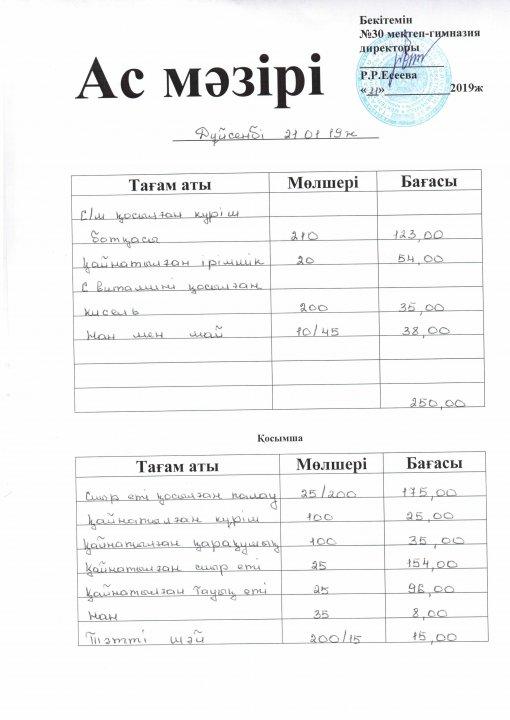 Бекітемін
№30 мектеп-гимназия
директоры
Р.Р.Есеева
«21» 2019ж
Ас мәзірі
Дүйсенбі 21 01 19ж
Тағам аты Мөлшері Бағасы
С/м қосылған күріш
ботқасы 210 123,00
Қайнатылған ірімшік 20 54,00
С витаминi қосылған
кисель 200 35,00
Нан мен май 10/45 38,00
250,00
Қосымша
Тағам аты Мөлшері Бағасы
Сиыр еті қосылған палау 25/200 175,00
Қайнатылған күріш 100 25,00
Қайнатылған қарақұмық 100 35,00
Қайнатылған сиыр еті 25 154,00
Қайнатылған тауық еті 25 96,00
Нан 35 8,00
Тәтті шәй 200/15 15,00